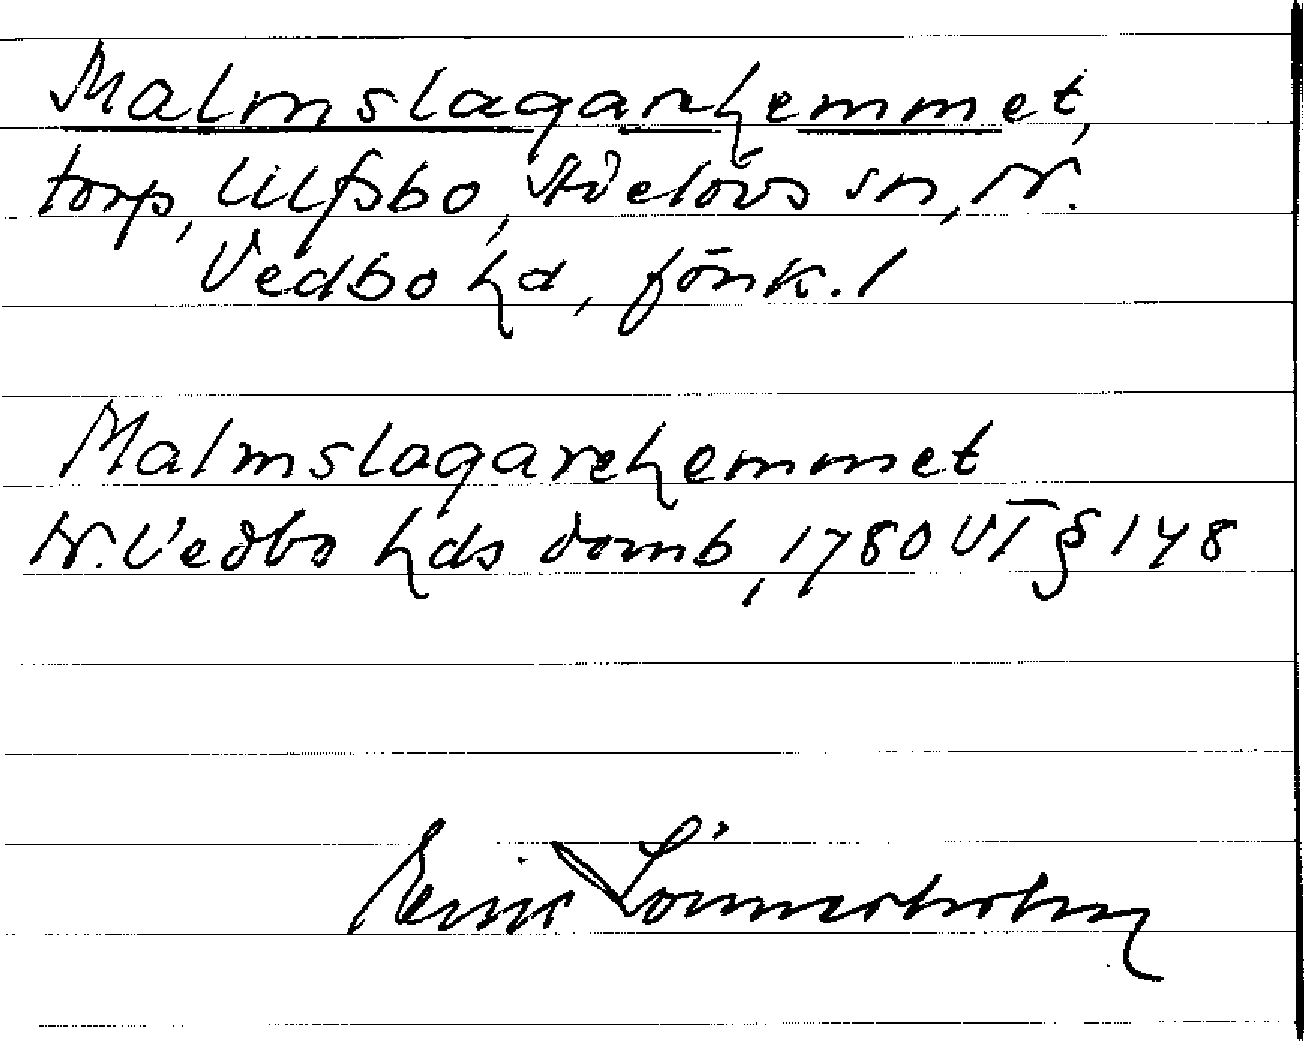 Malmslagarhemmet,
torp, Ulfsbo, Adelövs sn, N.
Vedbo hd, Jönk. l
Malmslagarehemmet
N. Vedbo hds domb, 1780 VT § 148